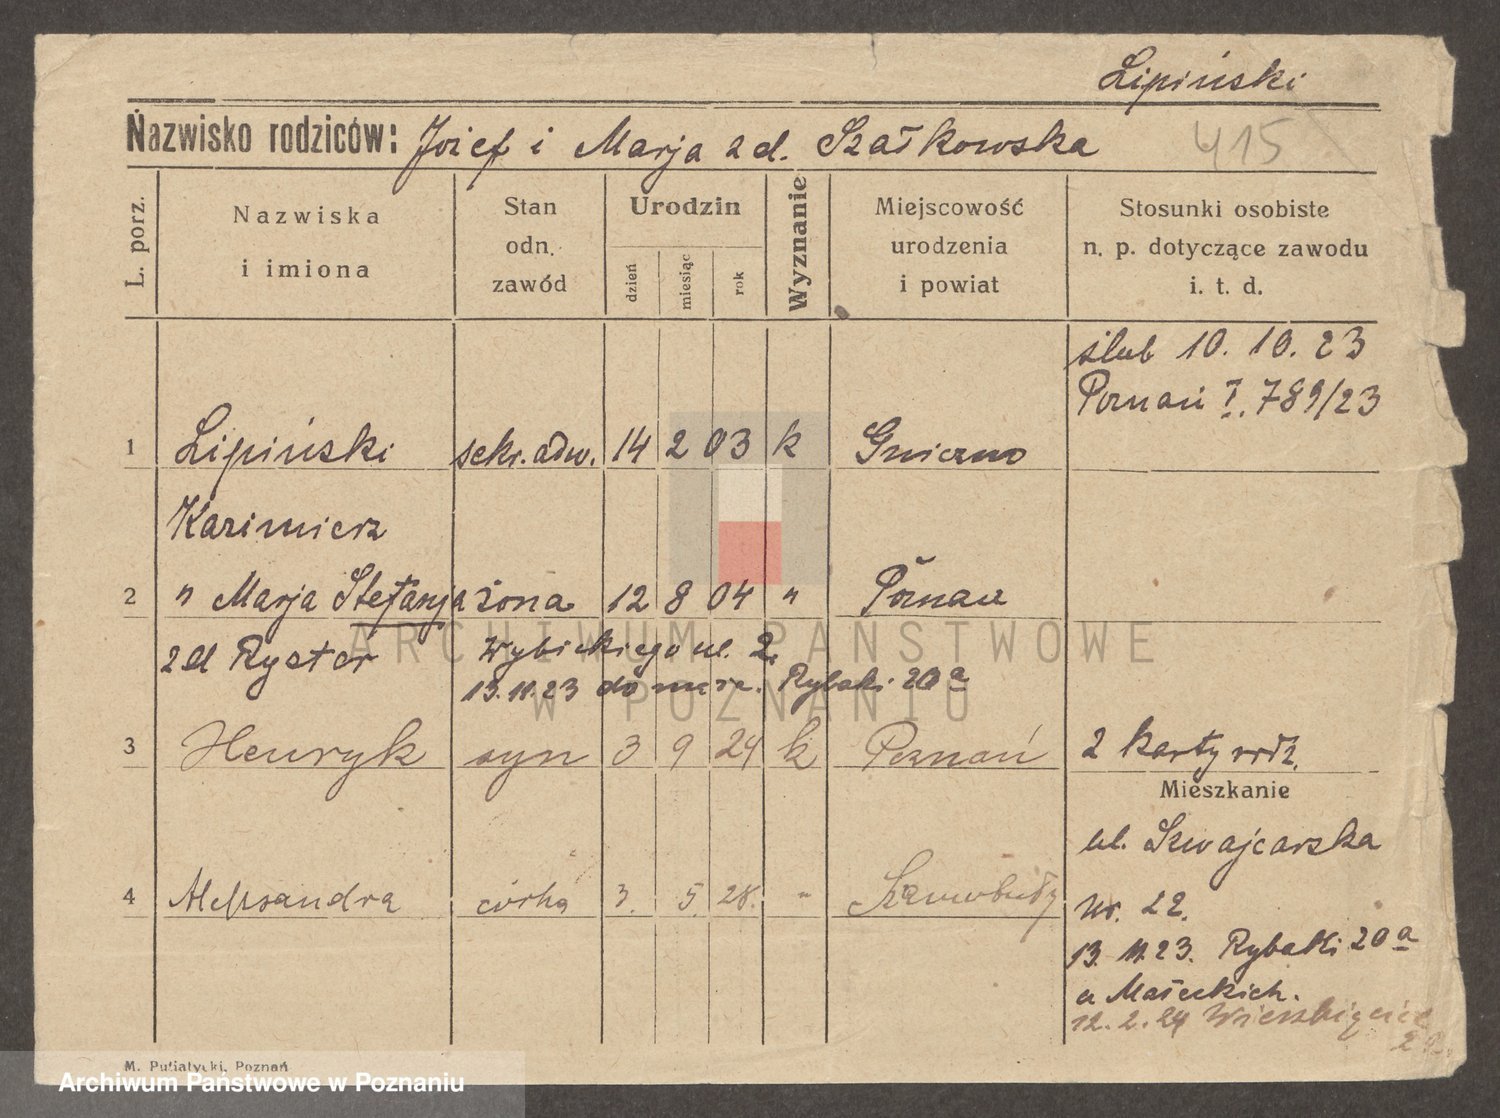 Lipiński
Nazwisko rodziców: Józef i Marja z d. Szałkowska
415
L. porz.
Nazwiska
i imiona
Stan
odn.
zawód
Urodzin
dzień
miesiąc
rok
Wyznanie
Miejscowość
urodzenia
i powiat
Stosunki osobiste
n. p. dotyczące zawodu
i. t. d.
ślub 10. 10. 23
Poznań I. 789/23
1 Lipiński sekr. adw. 14 2 03 k Gniezno
Kazimierz
2 " Marja Stefanja żona 12 8 04 " Poznań
z d Rystor Wybickiego ul. 2.
13.11.23 do Rybaki 20a
3 Henryk syn 3 9 24 k Poznań 2 karty
Mieszkanie
ul. Szwajcarska
4 Aleksandra córka 3. 5. 28. " Szamotuły
Nr. 22.
13. 11. 23. Rybaki 20a
u Małeckich.
12. 2. 24 Wierzbięcice
M. Putiatycki, Poznań
ARCHIWUM PAŃSTWOWE
W POZNANIU
Archiwum Państwowe w Poznaniu